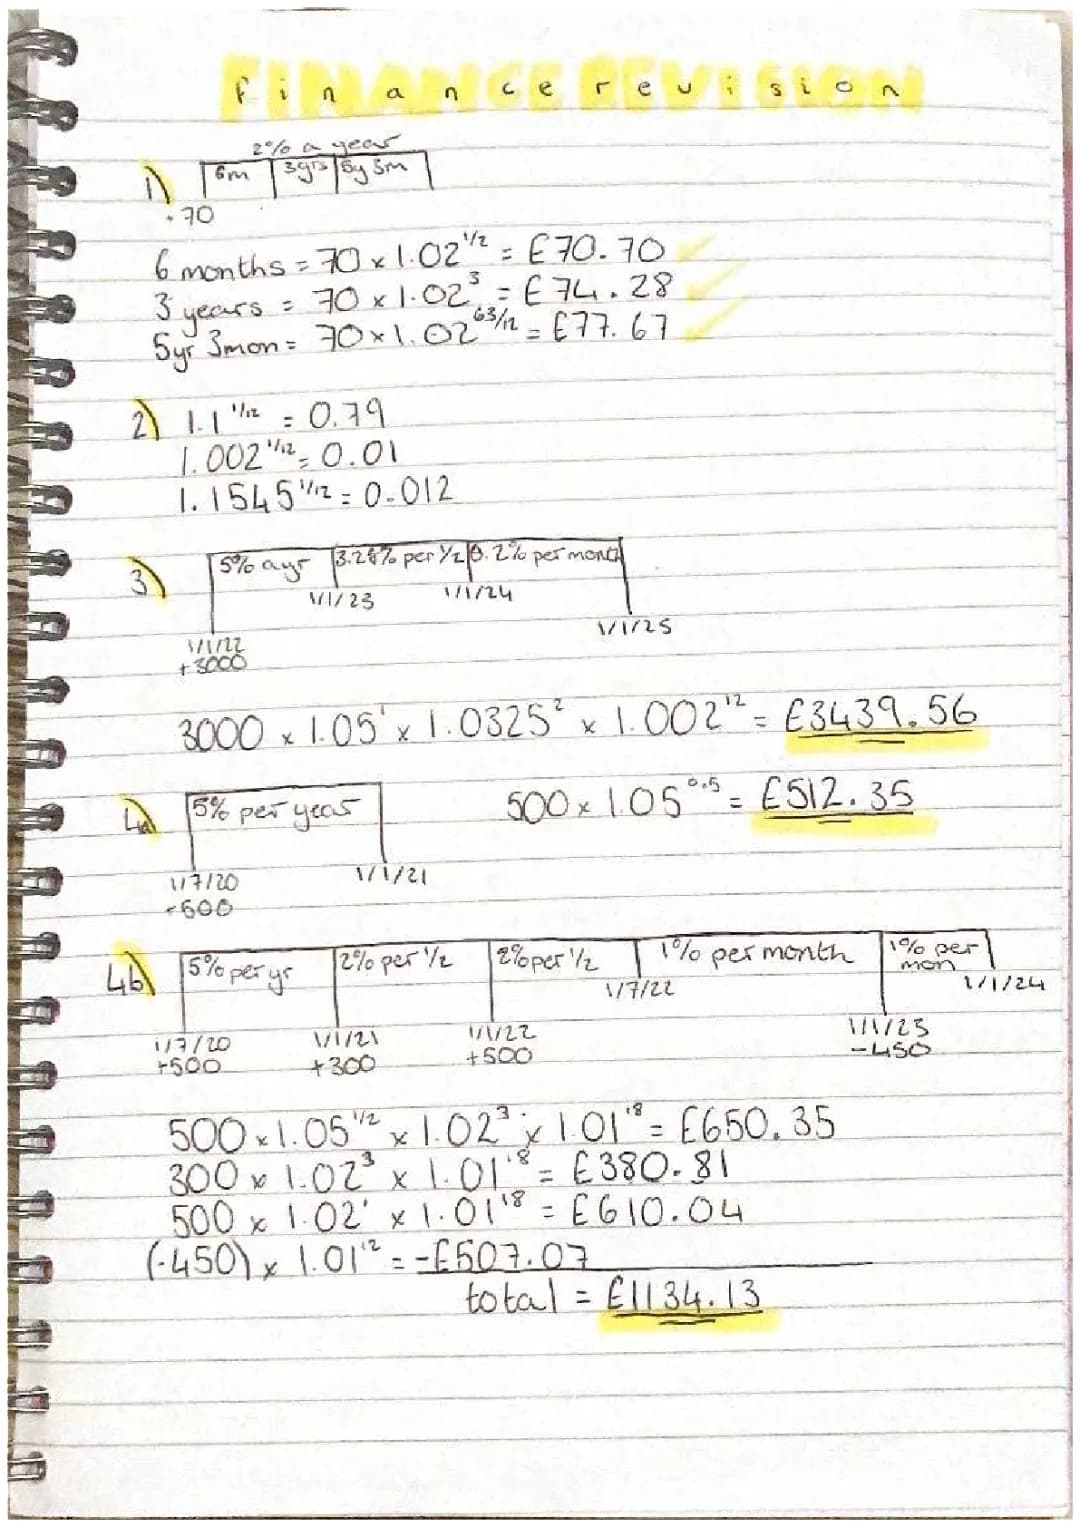 Finance revision
2% a year
1) 6m 3yrs 5y 3m
+70
6 months = 70 x 1.02^1/2 = £70.70
3 years = 70 x 1.02^3 = £74.28
5yr 3mon = 70 x 1.02^63/12 = £77.67
2) 1.1^1/12 = 0.79
1.002^1/12 = 0.01
1.1545^1/12 = 0.012
3) 5% a yr 3.25% per 1/2 0.2% per month
1/1/23 1/1/24
1/1/22 1/1/25
+3000
3000 x 1.05^1 x 1.0325^2 x 1.002^12 = £3439.56
4a) 5% per year 500 x 1.05^0.5 = £512.35
1/7/20 1/1/21
+500
4b) 5% per yr 2% per 1/2 2% per 1/2 1% per month 1% per mon
1/7/22 1/1/24
1/7/20 1/1/21 1/1/22 1/1/23
+500 +300 +500 -450
500 x 1.05^1/2 x 1.02^3 x 1.01^18 = £650.35
300 x 1.02^3 x 1.01^18 = £380.81
500 x 1.02^1 x 1.01^18 = £610.04
(-450) x 1.01^12 = -£507.07
total = £1134.13